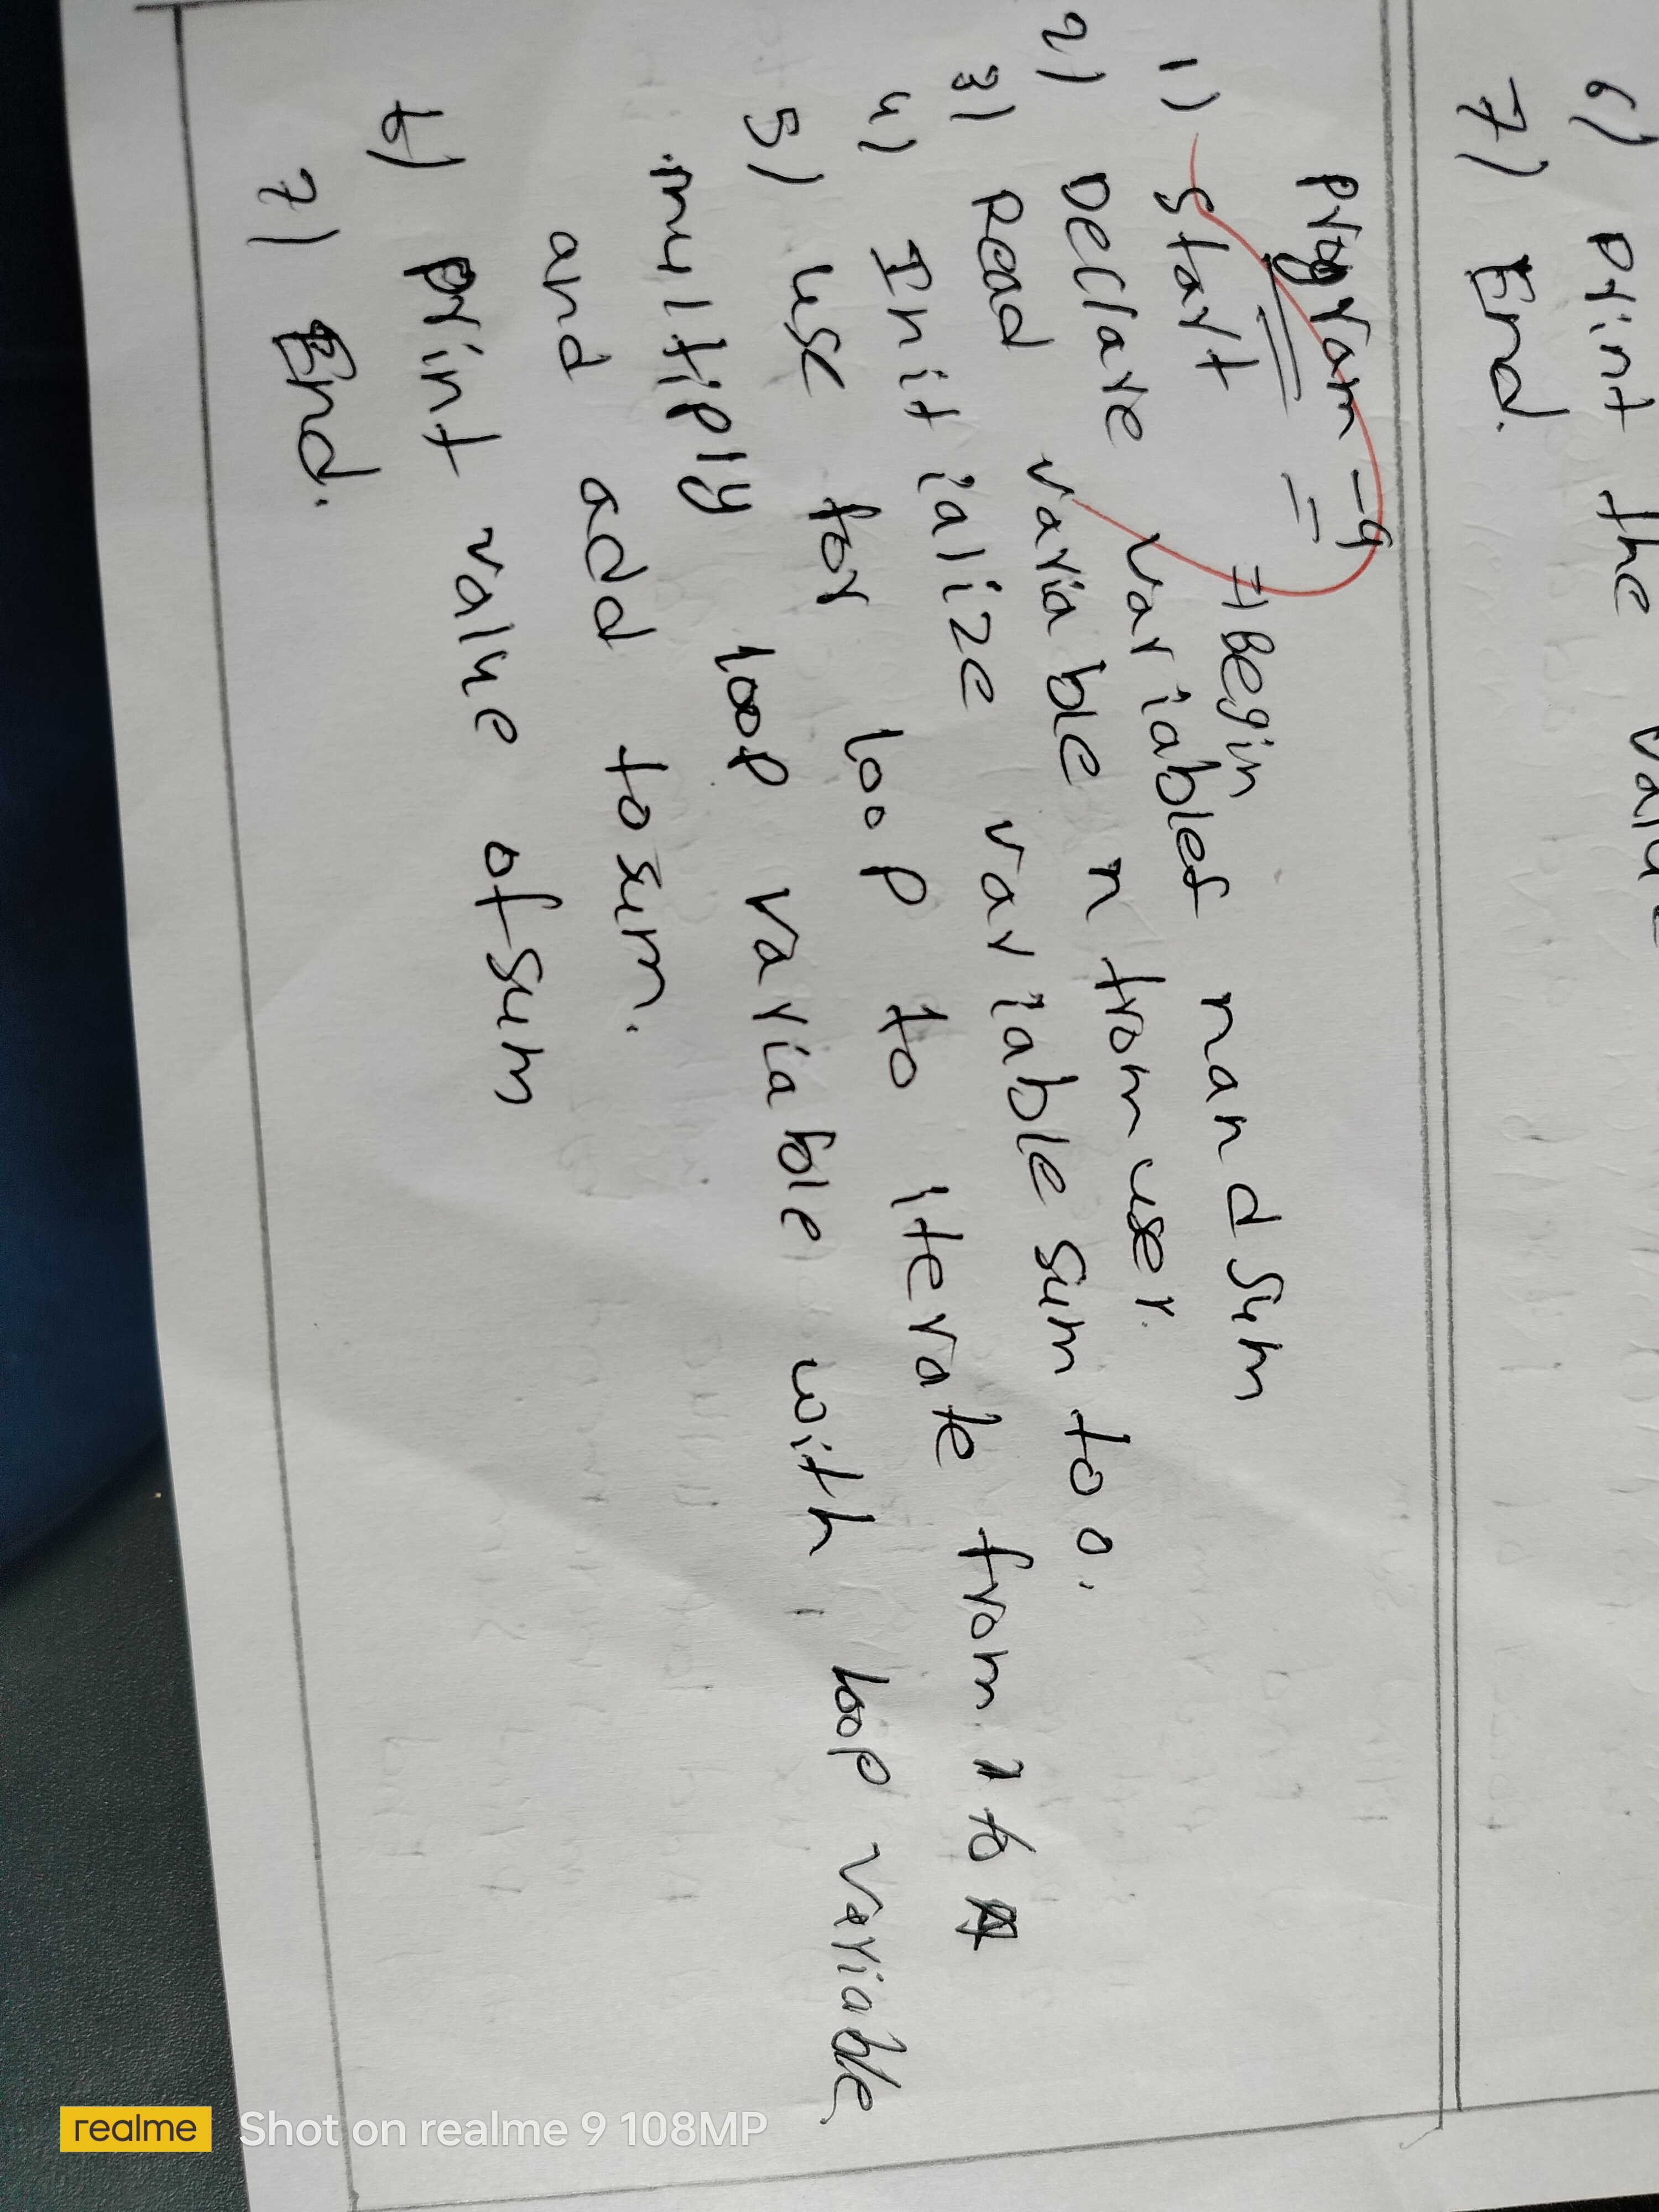 6) print the value
7) End.
program -9
1) start ⇒ Begin
2) Declare variables n and sum
3) Read variable n from user.
4) Initialize variable sum to 0.
5) use for loop to iterate from 1 to
multiply loop variable with loop variable
and add to sum.
6) print value of sum
7) End.
realme Shot on realme 9 108MP